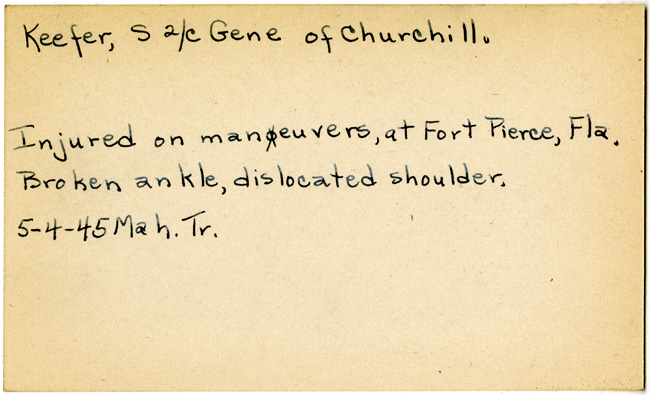 Keefer, S 2/c Gene of Churchill.
Injured on maneuvers, at Fort Pierce, Fla.
Broken ankle, dislocated shoulder.
5-4-45 Mah. Tr.